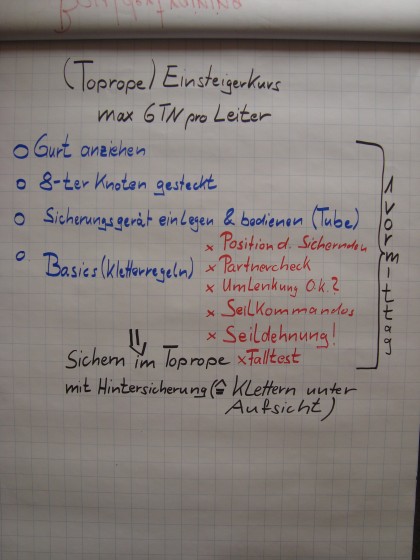 (Toprope) Einsteigerkurs
max 6TN pro Leiter
Gurt anziehen
8-ter Knoten gesteckt
Sicherungsgerät einlegen & bedienen (Tube)
Basics (Kletterregeln)
x Position d. Sichernden
x Partnercheck
x Umlenkung O.k.?
x Seilkommandos
x Seildehnung!
x Falltest
1 Vormittag
Sichern im Toprope
mit Hintersicherung (≙ Klettern unter
Aufsicht)